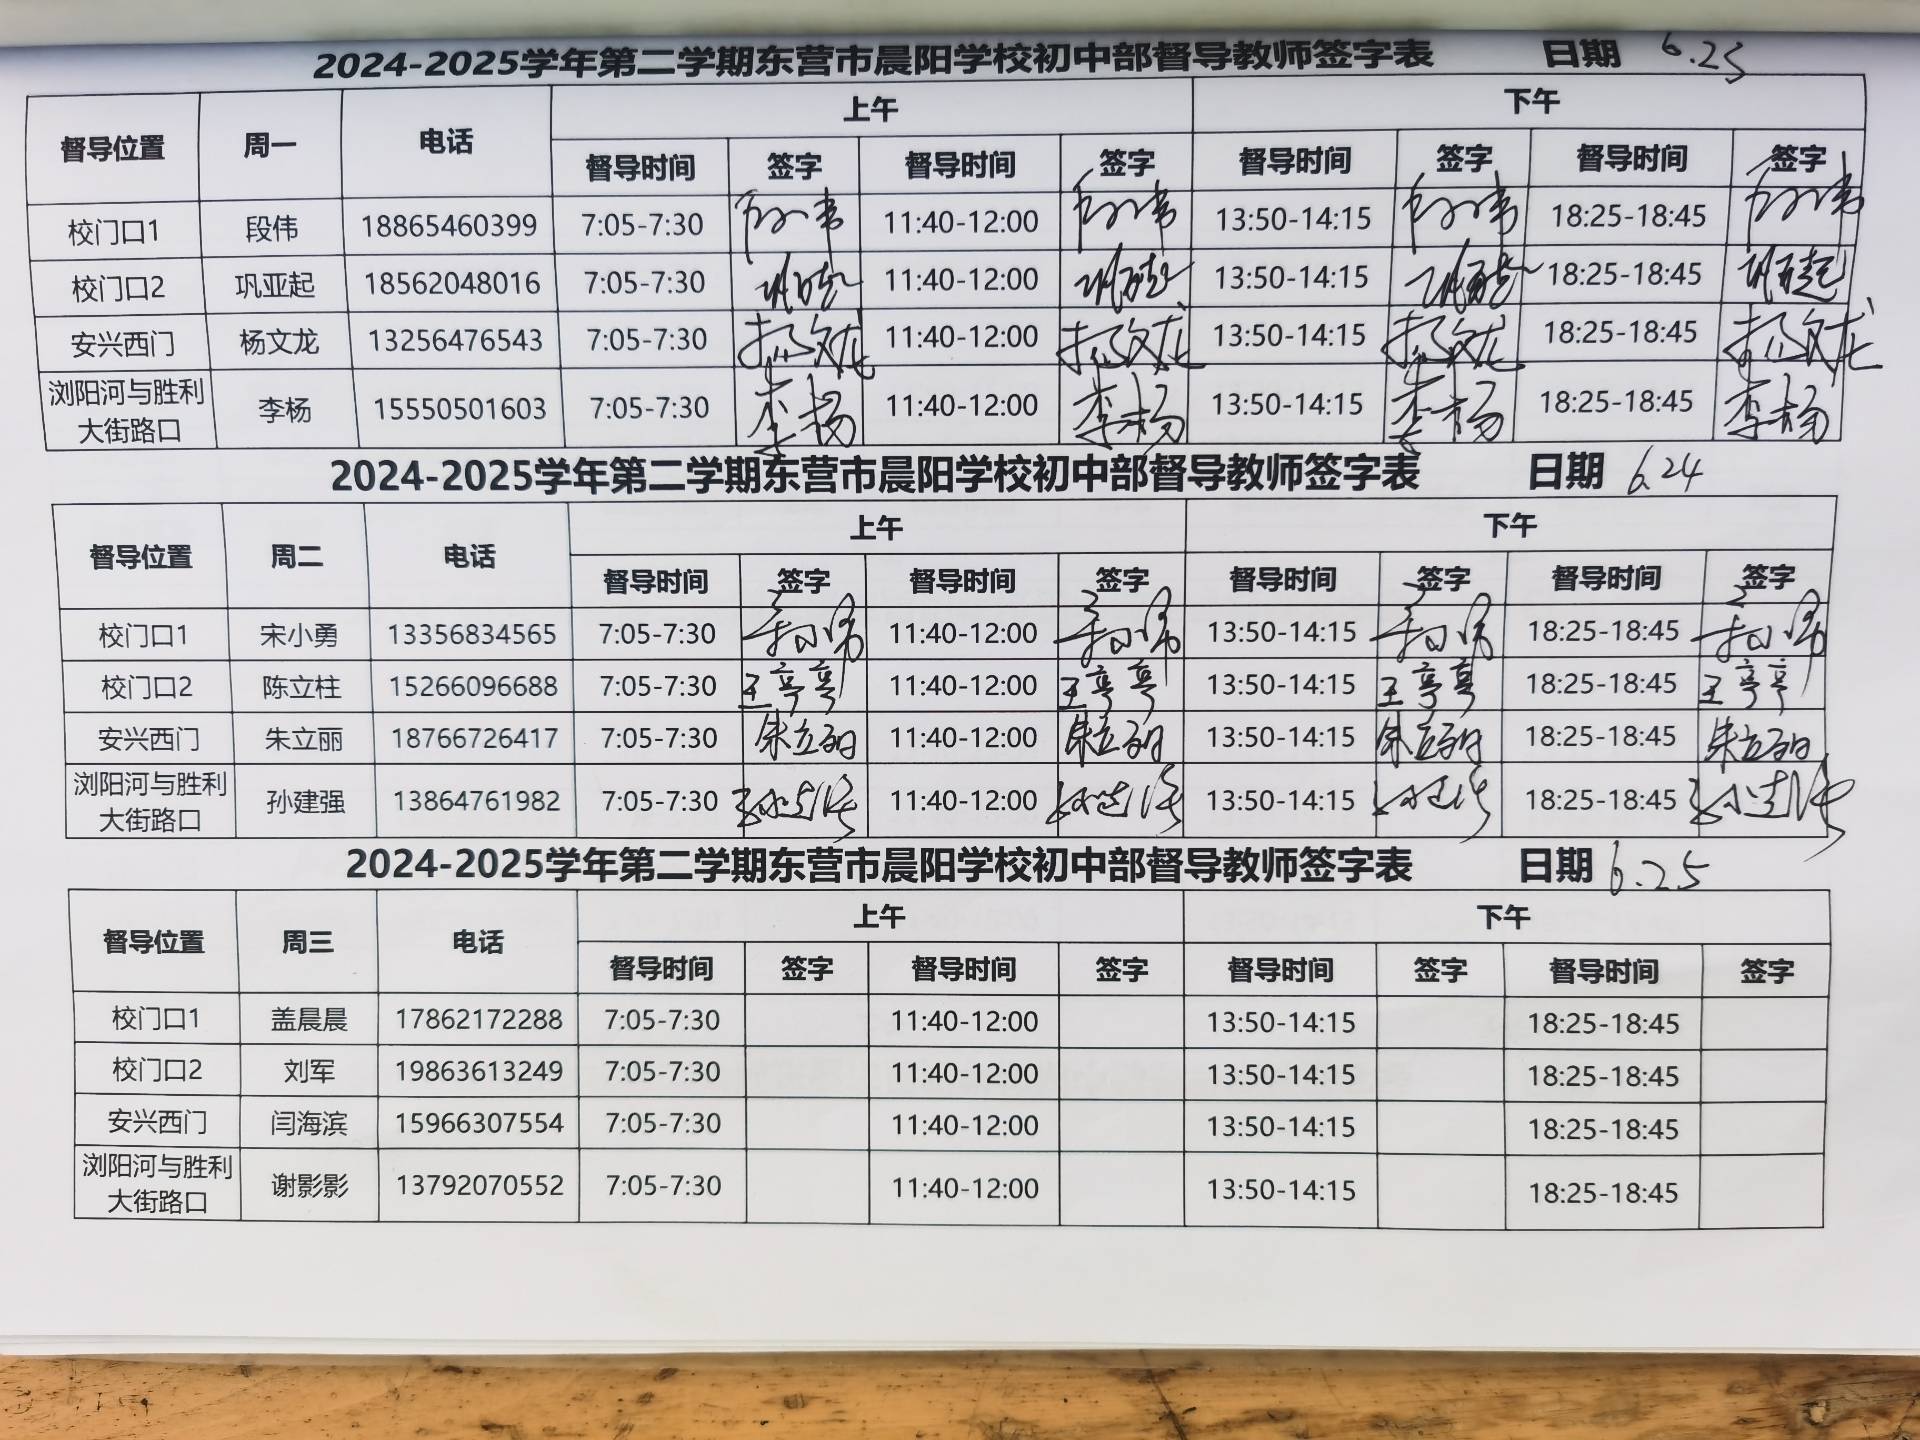 2024-2025学年第二学期东营市晨阳学校初中部督导教师签字表 日期 6.23
督导位置 周一 电话 上午 下午
督导时间 签字 督导时间 签字 督导时间 签字 督导时间 签字
校门口1 段伟 18865460399 7:05-7:30 段伟 11:40-12:00 段伟 13:50-14:15 段伟 18:25-18:45 段伟
校门口2 巩亚起 18562048016 7:05-7:30 巩亚起 11:40-12:00 巩亚起 13:50-14:15 巩亚起 18:25-18:45 巩亚起
安兴西门 杨文龙 13256476543 7:05-7:30 杨文龙 11:40-12:00 杨文龙 13:50-14:15 杨文龙 18:25-18:45 杨文龙
浏阳河与胜利
大街路口 李杨 15550501603 7:05-7:30 李杨 11:40-12:00 李杨 13:50-14:15 李杨 18:25-18:45 李杨
2024-2025学年第二学期东营市晨阳学校初中部督导教师签字表 日期 6.24
督导位置 周二 电话 上午 下午
督导时间 签字 督导时间 签字 督导时间 签字 督导时间 签字
校门口1 宋小勇 13356834565 7:05-7:30 11:40-12:00 13:50-14:15 18:25-18:45
校门口2 陈立柱 15266096688 7:05-7:30 王亭亭 11:40-12:00 王亭亭 13:50-14:15 王亭亭 18:25-18:45 王亭亭
安兴西门 朱立丽 18766726417 7:05-7:30 朱立丽 11:40-12:00 朱立丽 13:50-14:15 朱立丽 18:25-18:45 朱立丽
浏阳河与胜利
大街路口 孙建强 13864761982 7:05-7:30 孙建强 11:40-12:00 孙建强 13:50-14:15 孙建强 18:25-18:45 孙建强
2024-2025学年第二学期东营市晨阳学校初中部督导教师签字表 日期 6.25
督导位置 周三 电话 上午 下午
督导时间 签字 督导时间 签字 督导时间 签字 督导时间 签字
校门口1 盖晨晨 17862172288 7:05-7:30 11:40-12:00 13:50-14:15 18:25-18:45
校门口2 刘军 19863613249 7:05-7:30 11:40-12:00 13:50-14:15 18:25-18:45
安兴西门 闫海滨 15966307554 7:05-7:30 11:40-12:00 13:50-14:15 18:25-18:45
浏阳河与胜利
大街路口 谢影影 13792070552 7:05-7:30 11:40-12:00 13:50-14:15 18:25-18:45